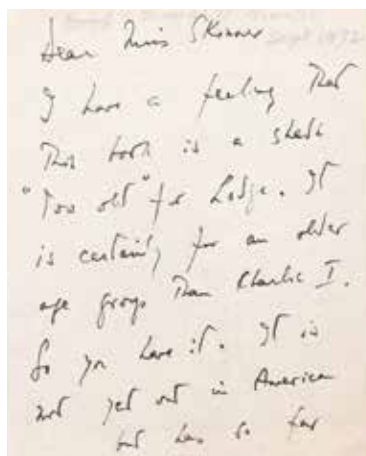 Sept 1972
Dear Miss Skinner
I have a feeling that
this book is a shade
"too old" for Lodge. It
is certainly for an older
age group than Charlie I.
So you have it. It is
not yet out in America
but has so far